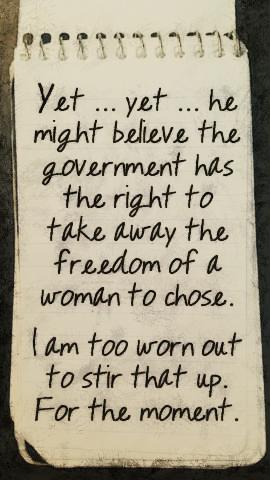 Yet ... yet ... he
might believe the
government has
the right to
take away the
freedom of a
woman to chose.
I am too worn out
to stir that up.
For the moment.